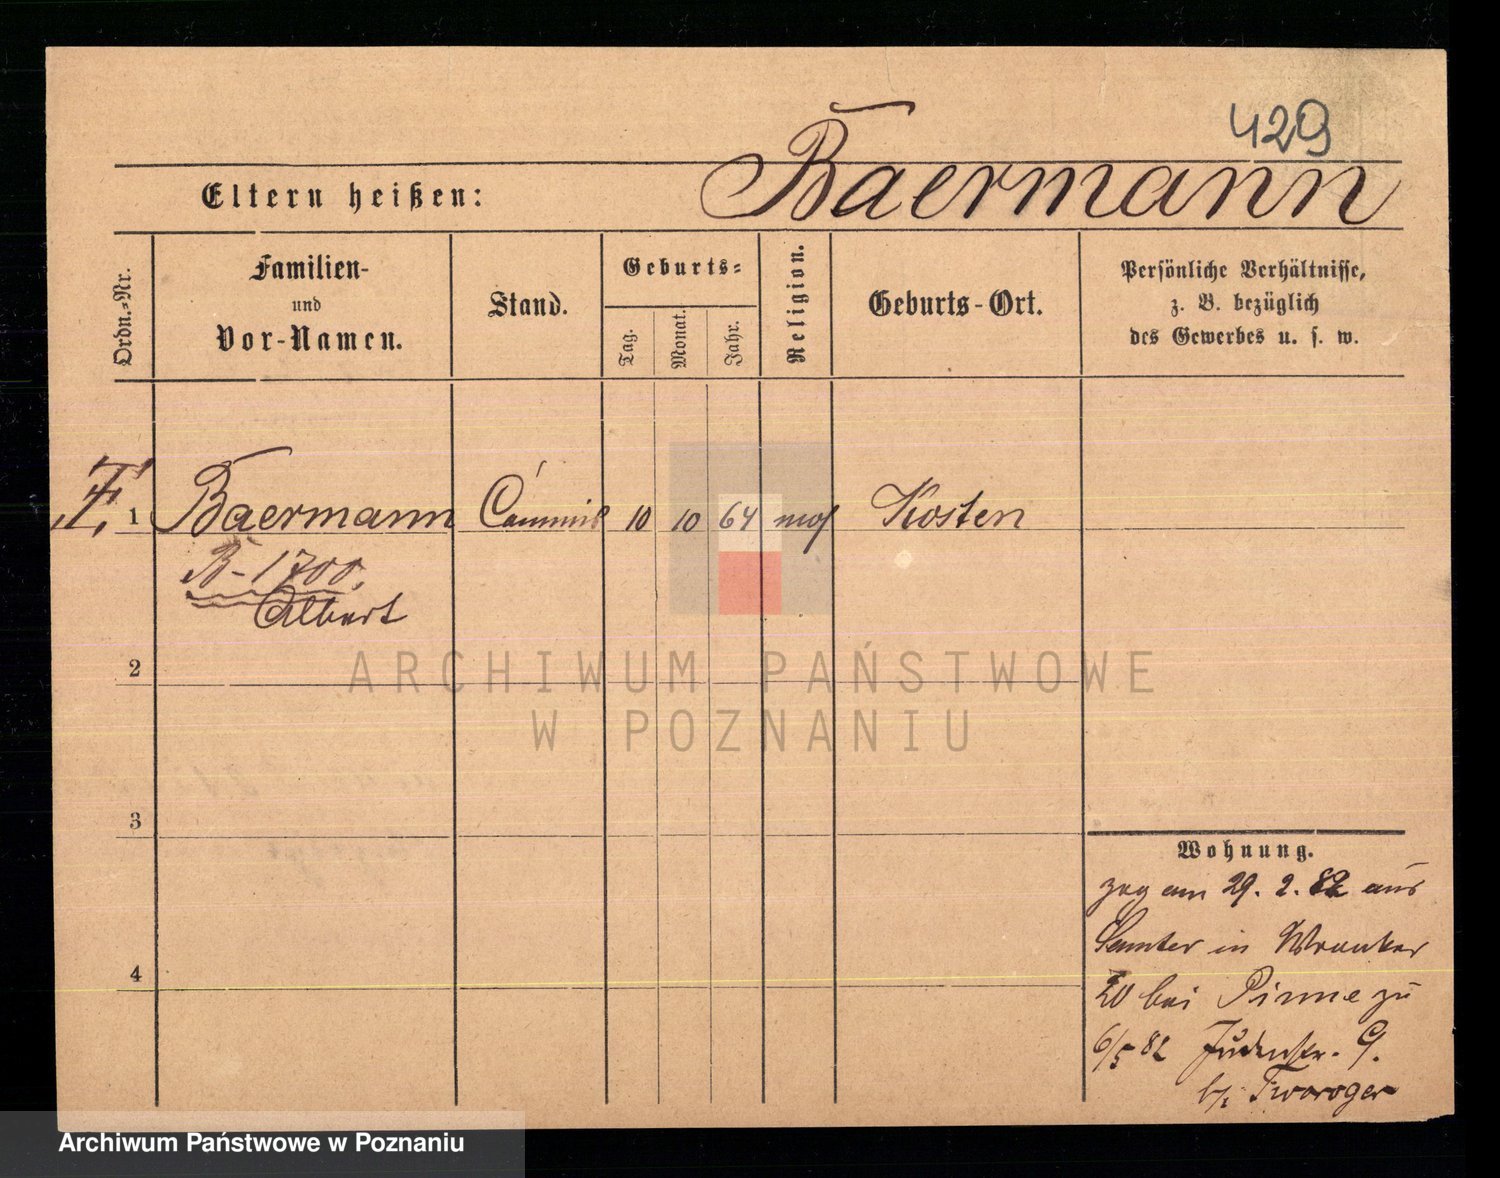 429
Eltern heißen: Baermann
Ordn.-Nr.
Familien-
und
Vor-Namen.
Stand.
Geburts-
Tag.
Monat.
Jahr.
Religion.
Geburts-Ort.
Persönliche Verhältnisse,
z. B. bezüglich
des Gewerbes u. s. w.
1 Baermann Commis 10 10 64 mos Kosten
B-1700.
Albert
2
3
4
Wohnung.
zog am 29. 2. 82 aus
Samter in Wronker
20 bei Pinne zu
6/5 82 Judenstr. 9.
b/ Tworoger
ARCHIWUM PAŃSTWOWE
W POZNANIU
Archiwum Państwowe w Poznaniu